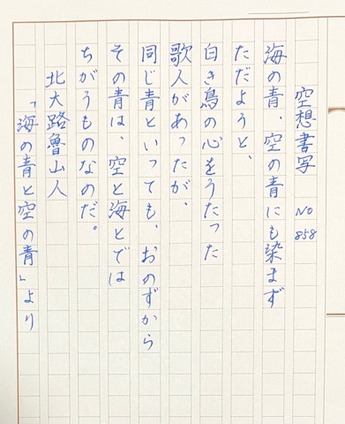 空想書写 NO 858
海の青、空の青にも染まず
ただようと、
白き鳥の心をうたった
歌人があったが、
同じ青といっても、おのずから
その青は、空と海とでは
ちがうものなのだ。
北大路魯山人
「海の青と空の青」より